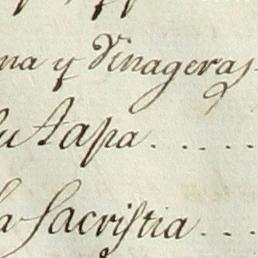 na y Vinageras
su tapa . . . . .
la Sacristia . . .